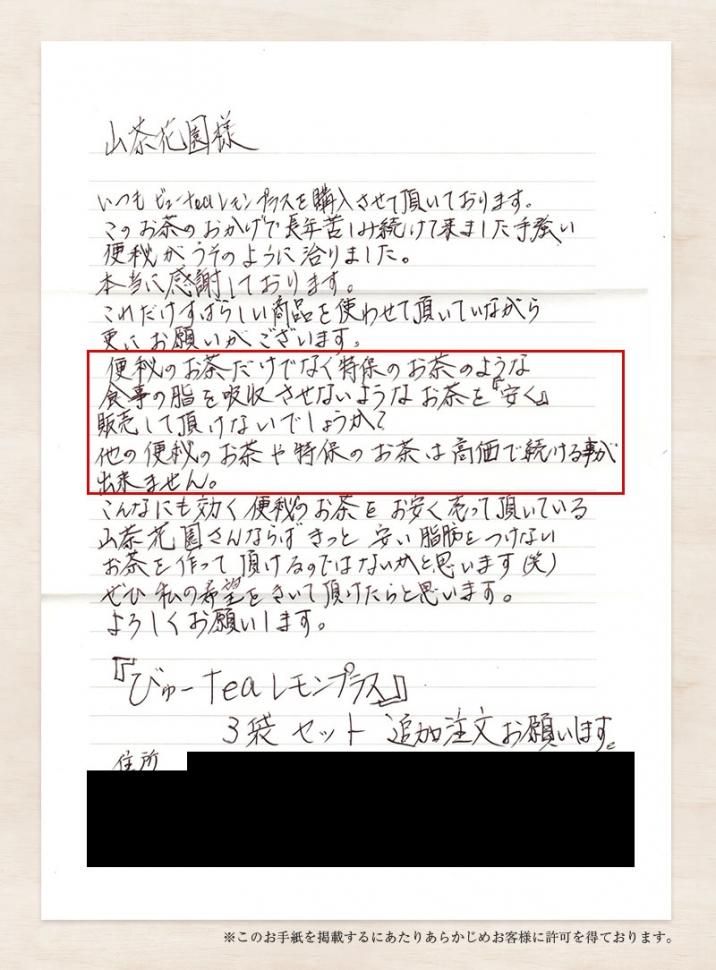 山茶花園様
いつも ビューteaレモンプラスを購入させて頂いております。
このお茶のおかげで長年苦しみ続けて来ました手強い
便秘がうそのように治りました。
本当に感謝しております。
これだけすばらしい商品を使わせて頂いていながら
更にお願いがございます。
便秘のお茶だけでなく特保のお茶のような
食事の脂を吸収させないようなお茶を『安く』
販売して頂けないでしょうか?
他の便秘のお茶や特保のお茶は高価で続ける事が
出来ません。
こんなにも効く便秘のお茶をお安く売って頂いている
山茶花園さんならばきっと安い脂肪をつけない
お茶を作って頂けるのではないかと思います(笑)
ぜひ私の希望をきいて頂けたらと思います。
よろしくお願いします。
『びゅーteaレモンプラス』
3袋セット 追加注文お願いします。
住所
※このお手紙を掲載するにあたりあらかじめお客様に許可を得ております。